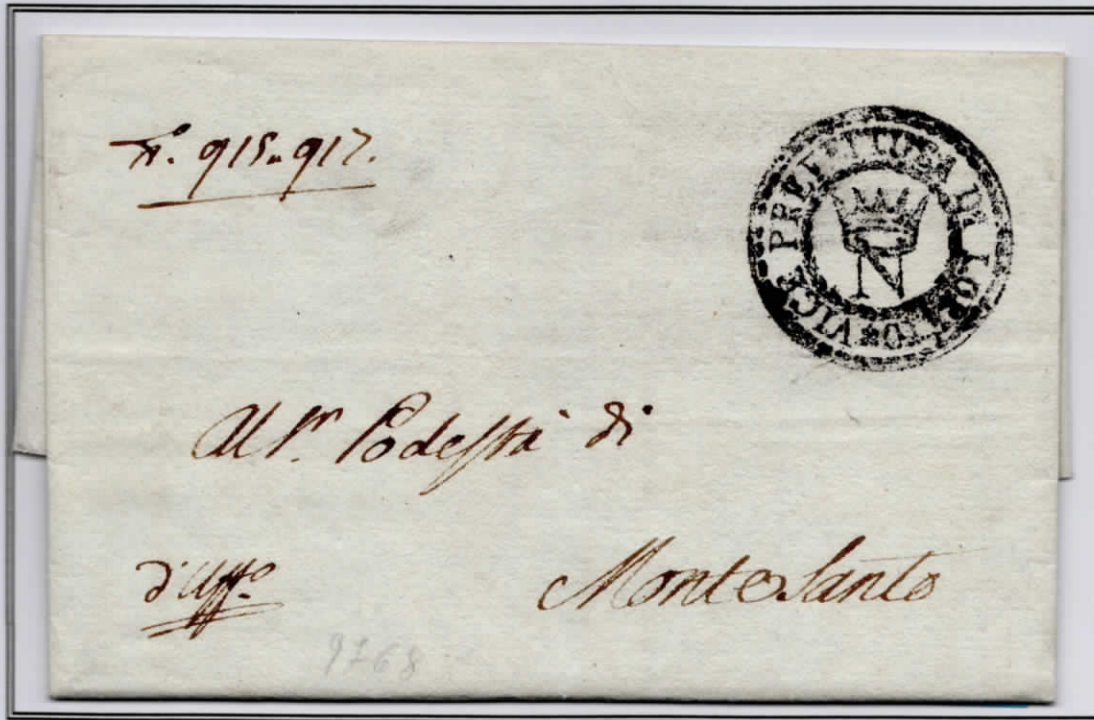 N. 915 „ 917.
VICE PREFETTURA DI LORETO
N
Al Sr. Podestà di
Monte Santo
d'Uffo.
9768